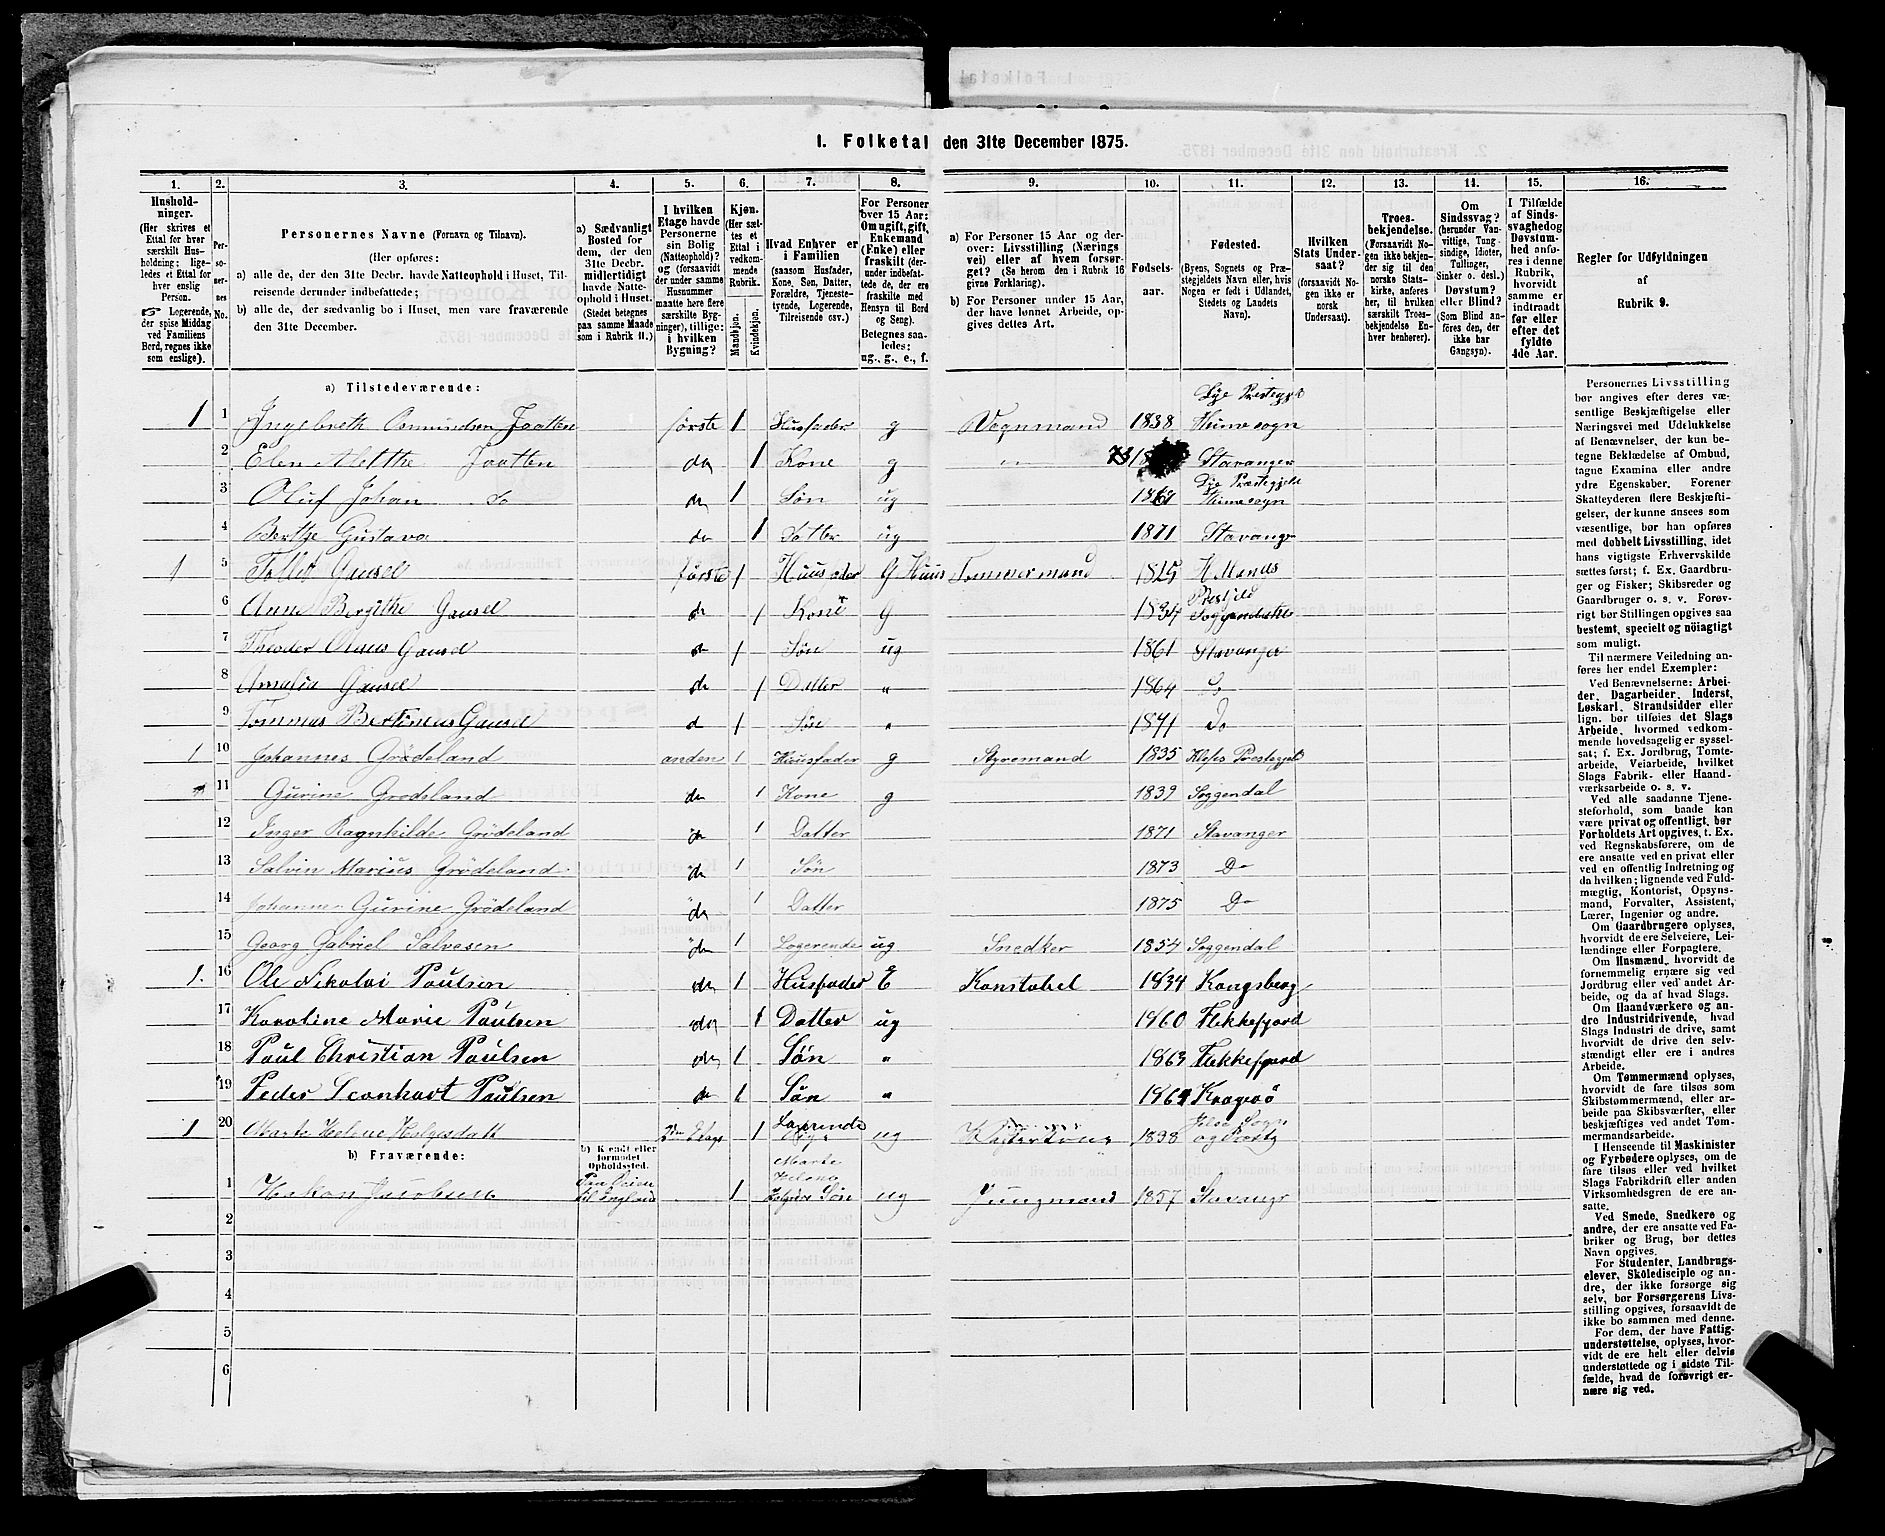 1. Folketal den 31te December 1875.
1. 2. 3. 4. 5. 6. 7. 8. 9. 10. 11. 12. 13. 14. 15. 16.
Hushold-
ninger.
(Her skrives et
Ettal for hver
særskilt Hus-
holdning; lige-
ledes et Ettal for
hver enslig
Person.
☞ Logerende,
der spise Middag
ved Familiens
Bord, regnes ikke
som enslige).
Per-
so-
ner-
nes
No.
Personernes Navne (Fornavn og Tilnavn).
(Her opføres:
a) alle de, der den 31te Decbr. havde Natteophold i Huset, Til-
reisende derunder indbefattede;
b) alle de, der sædvanlig bo i Huset, men vare fraværende
den 31te December.
a) Sædvanligt
Bosted for
dem, der den
31te Decbr.
midlertidigt
havde Natte-
ophold i Huset.
(Stedet betegnes
paa samme Maade
som i Rubrik 11.)
I hvilken
Etage havde
Personerne
sin Bolig
(Natteophold)?
og (forsaavidt
der under samme
Husnummer
maatte høre flere
særskilte Byg-
ninger), tillige:
i hvilken
Bygning?
Kjøn.
(Her sæt-
tes et
Ettal i
vedkom-
mende
Rubrik.
Mandkjøn.
Kvindekjøn.
Hvad Enhver er
i Familien
(saasom Husfader,
Kone, Søn, Datter,
Forældre, Tjeneste-
tyende, Logerende,
Tilreisende osv.)
For Personer
over 15 Aar:
Om ugift, gift,
Enkemand
(Enke) eller
fraskilt (der-
under indbefat-
tede de, der ere
fraskilte med
Hensyn til Bord
og Seng).
Betegnes saa-
ledes:
ug., g., e., f.
a) For Personer 15 Aar og der-
over: Livsstilling (Nærings
vei) eller af hvem forsør-
get? (Se herom den i Rubrik 16
givne Forklaring).
b) For Personer under 15 Aar,
der have lønnet Arbeide, op-
gives dettes Art.
Fødsels-
aar.
Fødested.
(Byens, Sognets og Præ-
stegjeldets Navn eller, hvis
Nogen er født i Udlandet,
Stedets og Landets
Navn).
Hvilken
Stats Under-
saat?
(forsaavidt No-
gen ikke er
norsk
Undersaat).
Troes-
bekjendelse.
(Forsaavidt No-
gen ikke bekjen-
der sig til den
norske Stats-
kirke, anføres
her, til hvilken
særskilt Troes-
bekjendelse En-
hver henhører).
Om
Sindssvag?
(herunder Van-
vittige, Tung-
sindige, Idioter,
Tullinger,
Sinker o. desl.)
Døvstum?
eller Blind?
(Som Blind an-
føres den, der
ikke har
Gangsyn).
I Tilfælde
af Sinds-
svaghed og
Døvstum-
hed anfø-
res i denne
Rubrik,
hvorvidt
samme er
indtraadt
før eller
efter det
fyldte
4de Aar.
Regler for Udfyldningen
af
Rubrik 9.
a) Tilstedeværende:
1 1 Ingebreth Osmundsen Jaatten første 1 Husfader g Vognmand 1838 Lye Prestegjeld Hime sogn
2 Elen Malthe Jaatten do 1 Kone g " 73 Stavanger
3 Oluf Johan do do 1 Søn ug Lye Præstegjeld Hime sogn
4 Berthe Gustava do 1 Datter ug 1871 Stavanger
1 5 Gausel første 1 Huusfader G Huus Tømmermand 1825
6 Anne Gausel do 1 Kone g 1834 Prestjeld
7 Theodor Gausel do 1 Søn ug 1861 Stavanger
8 Amalia Gausel do 1 Datter " 1864 Do
9 Tommas Bertineus Gausel d 1 Søn " Do
1 10 Johannes Grödeland anden 1 Huusfader g Styremand 1835 Præstegjeld
11 Gurine Grödeland do 1 Kone g 1839 Soggendal
12 Inger Ragnhilde Grödeland do 1 Datter 1871 Stavanger
13 Salvin Marius Grödeland do 1 Søn 1873 Do
14 Johanne Gurine Grödeland do 1 Datter 1875 Do
15 Georg Gabriel Salvesen do 1 Logerende ug Snedker 1854 Soggendal
1. 16 Ole Nikolai Paulsen do 1 Husfader E Konstabel 1834 Kongsberg
17 Karoline Marie Paulsen do 1 Datter ug 1860 Flekkefjord
18 Paul Christian Paulsen do 1 Søn " 1863 Flekkefjord
19 Peder Leonhart Paulsen do 1 Søn " Kragerö
1 20 Marte Helene Helgesdatt 2den Etage 1 Logerende ug Sogn og Præstg
b) Fraværende: b) Kjendt eller
formodet
Opholdssted.
1 Hakon Jacobsen Paa Reisen til England 1 Marte Helene Søn ug Jungmand 1857 Stavanger
2
3
4
5
6
Personernes Livsstilling
bør angives efter deres væ-
sentlige Beskjæftigelse eller
Næringsvei med Udelukkelse
af Benævnelser, der kun be-
tegne Beklædelse af Ombud,
tagne Examina eller andre
ydre Egenskaber. Forener
Skatteyderen flere Beskjæfti-
gelser, der kunne ansees som
væsentlige, bør han opføres
med dobbelt Livsstilling, idet
hans vigtigste Erhvervskilde
sættes først; f. Ex. Gaardbru-
ger og Fisker; Skibsreder og
Gaardbruger o. s. v. Forøv-
rigt bør Stillingen opgives saa
bestemt, specielt og nøiagtigt
som muligt.
Til nærmere Veiledning an-
føres her endel Exempler:
Ved Benævnelserne: Arbei-
der, Dagarbeider, Inderst,
Løskarl, Strandsidder eller
lign. bør tilføies det Slags
Arbeide, hvormed vedkom-
mende hovedsagelig er syssel-
sat; f. Ex. Jordbrug, Tomte-
arbeide, Veiarbeide, hvilket
Slags Fabrik- eller Haand-
værksarbeide o. s. v.
Ved alle saadanne Tjene-
steforhold, som baade kan
være privat og offentligt, bør
Forholdets Art opgives, t. Ex.
ved Regnskabsførere, om de
ere ansatte ved en privat eller
ved en offentlig Indretning og
da hvilken; lignende ved Fuld-
mægtig, Kontorist, Opsyns-
mand, Forvalter, Assistent,
Lærer, Ingeniør og andre.
Om Gaardbrugere oplyses,
hvorvidt de ere Selveiere, Lei-
lændinge eller Forpagtere.
Om Husmænd, hvorvidt de
fornemmelig ernære sig ved
Jordbrug eller ved andet Ar-
beide, og da af hvad Slags.
Om Haandværkere og an-
dre Industridrivende, hvad
Slags Industri de drive, samt
hvorvidt de drive den selv-
stændigt eller ere i andres
Arbeide.
Om Tømmermænd oplyses,
hvorvidt de fare tilsøs som
Skibstømmermænd, eller ar-
beide paa Skibsværfter, eller
beskjæftiges ved andet Tøm-
mermandsarbeide.
I Henseende til Maskinister
og Fyrbødere oplyses, om de
fare tilsøs eller ved hvilket
Slags Fabrikdrift eller anden
Virksomhedsgren de ere an-
satte.
Ved Smede, Snedkere og
andre, der ere ansatte ved Fa-
briker og Brug, bør dettes
Navn opgives.
For Studenter, Landbrugs-
elever, Skoledisciple og an-
dre, der ikke forsørge sig
selv, bør Forsørgerens Livs-
stilling opgives, forsaavidt de
ikke bo sammen med denne.
For dem, der have Fattig-
understøttelse, oplyses, hvor-
vidt de ere helt eller delvis
understøttede og i sidste Til-
fælde, hvad de forøvrigt er-
nære sig ved.